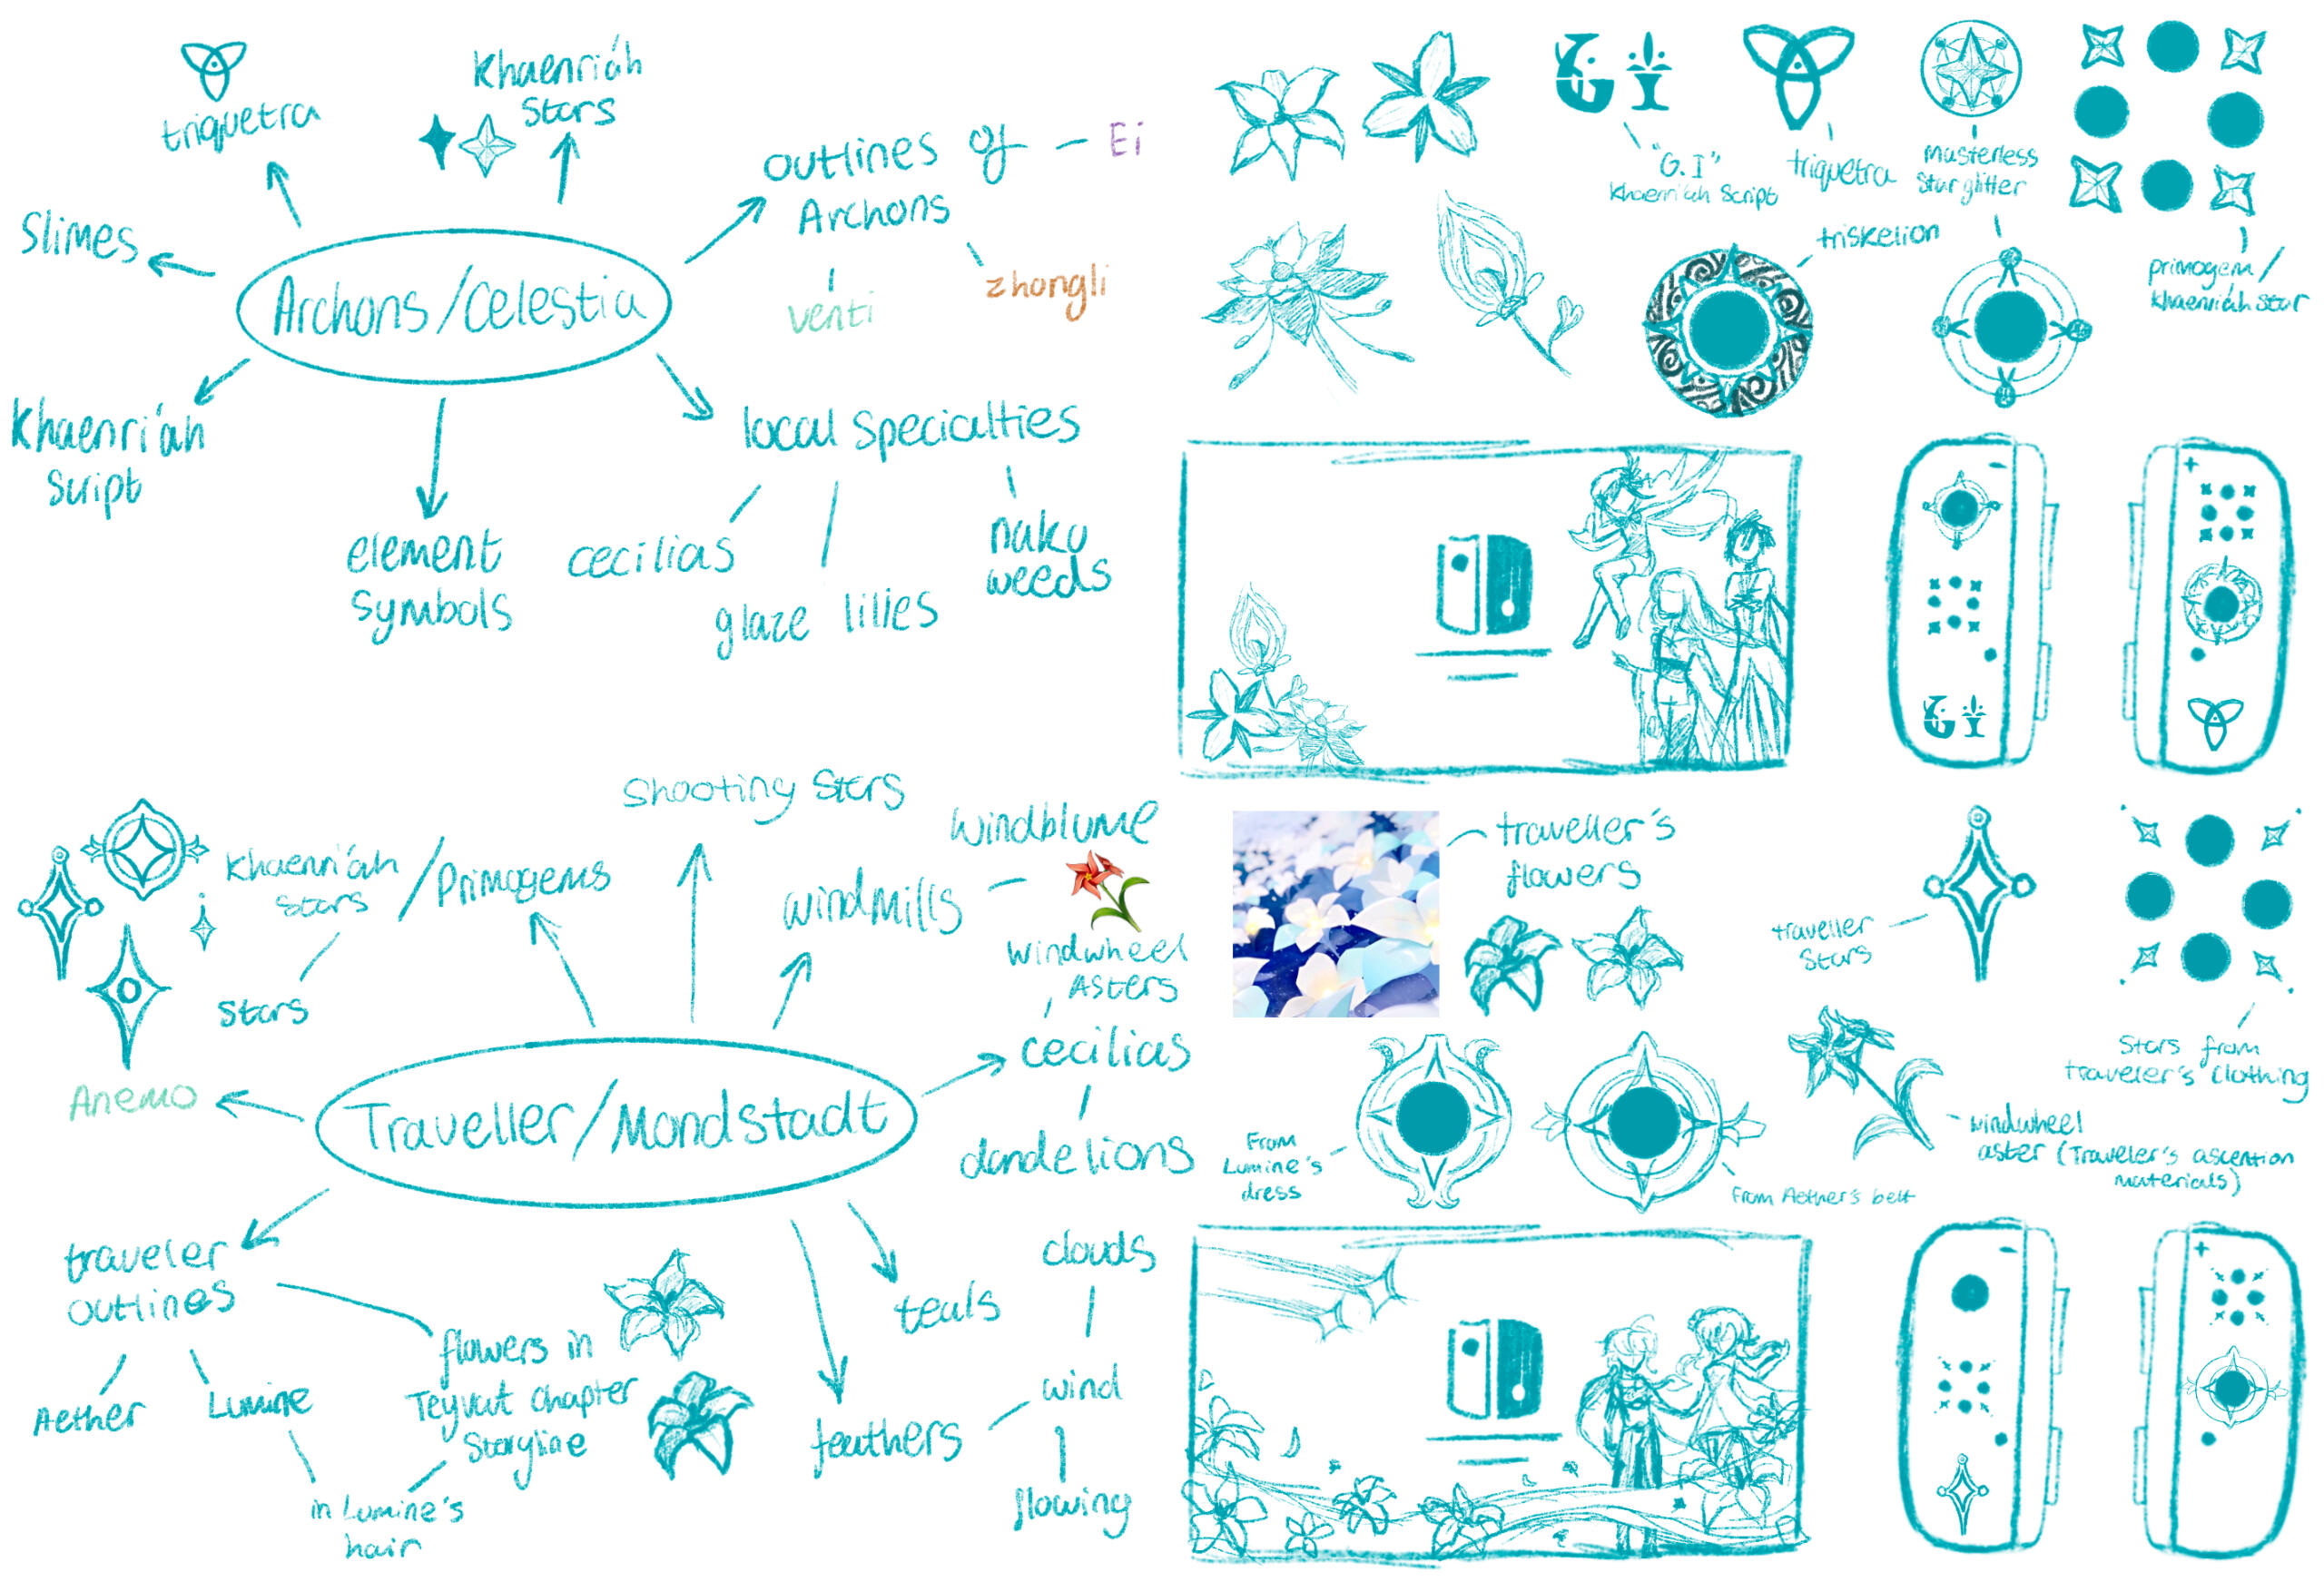 triquetra
Khaenri'ah
Stars
Slimes
outlines of
Archons
Ei
venti
zhongli
Archons/Celestia
Khaenri'ah
Script
element
symbols
local specialties
cecilias
glaze lilies
naku
weeds
"G.I"
Khaenri'ah Script
triquetra
Masterless
Starglitter
primogem/
Khaenri'ah Star
triskelion
Shooting Stars
Khaenri'ah
Stars
/Primogems
Stars
windmills
Windblume
Windwheel
Asters
cecilias
dandelions
Anemo
Traveller/Mondstadt
traveler
outlines
Aether
Lumine
in Lumine's
hair
flowers in
Teyvat Chapter
Storyline
feathers
teals
clouds
wind
flowing
traveller's
flowers
traveller
Stars
Stars from
traveler's clothing
From
Lumine's
dress
From Aether's belt
windwheel
aster (Traveler's ascention
materials)